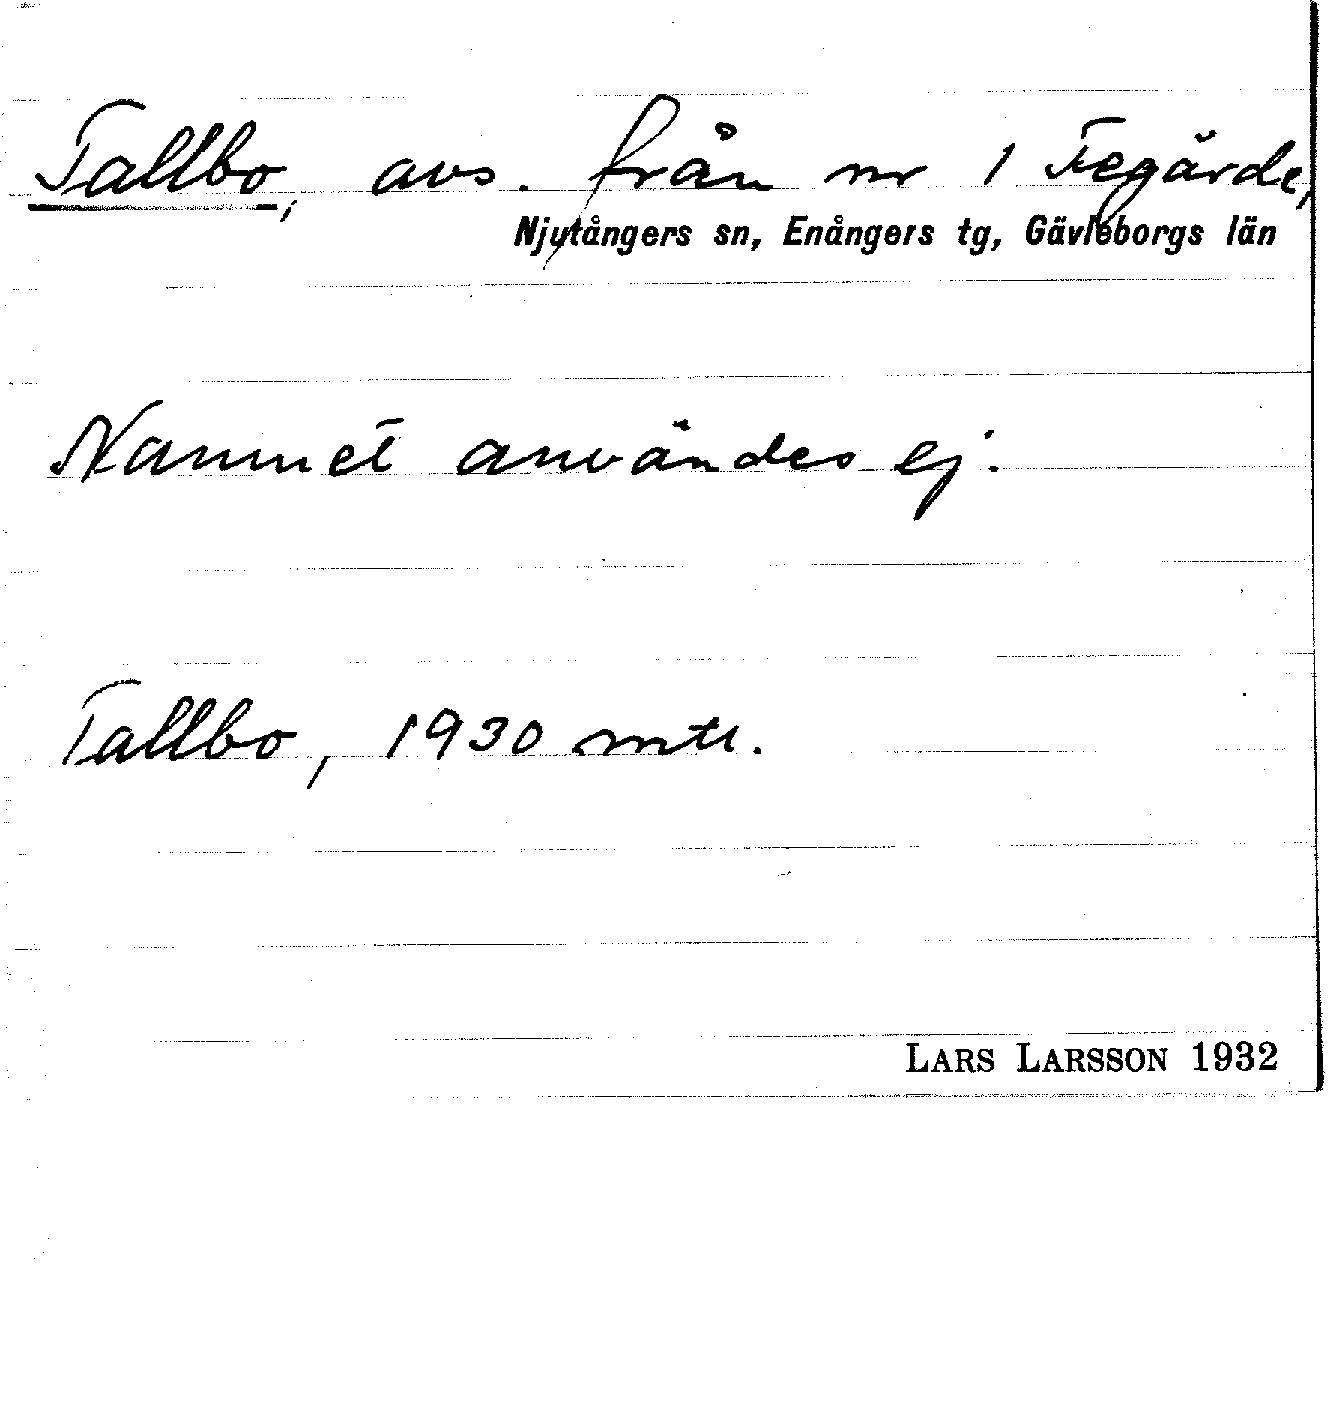 Tallbo, avs. från nr 1 Fegärde,
Njutångers sn, Enångers tg, Gävleborgs län
Namnet användes ej.
Tallbo, 1930 mtl.
LARS LARSSON 1932